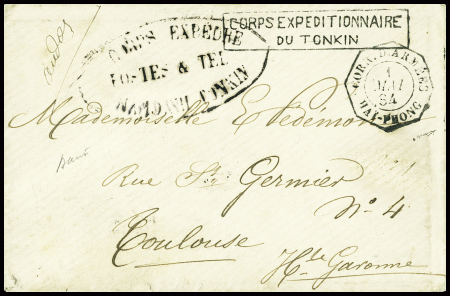 CORPS EXPEDITIONNAIRE
DU TONKIN
CORPS EXPEDRE
POSTES & TEL
TONKIN
CORR. D. ARMEES
1
MAI
84
HAI-PHONG
Mademoiselle E. Pédemon
Rue St. Germier
No 4
Toulouse
Hte Garonne